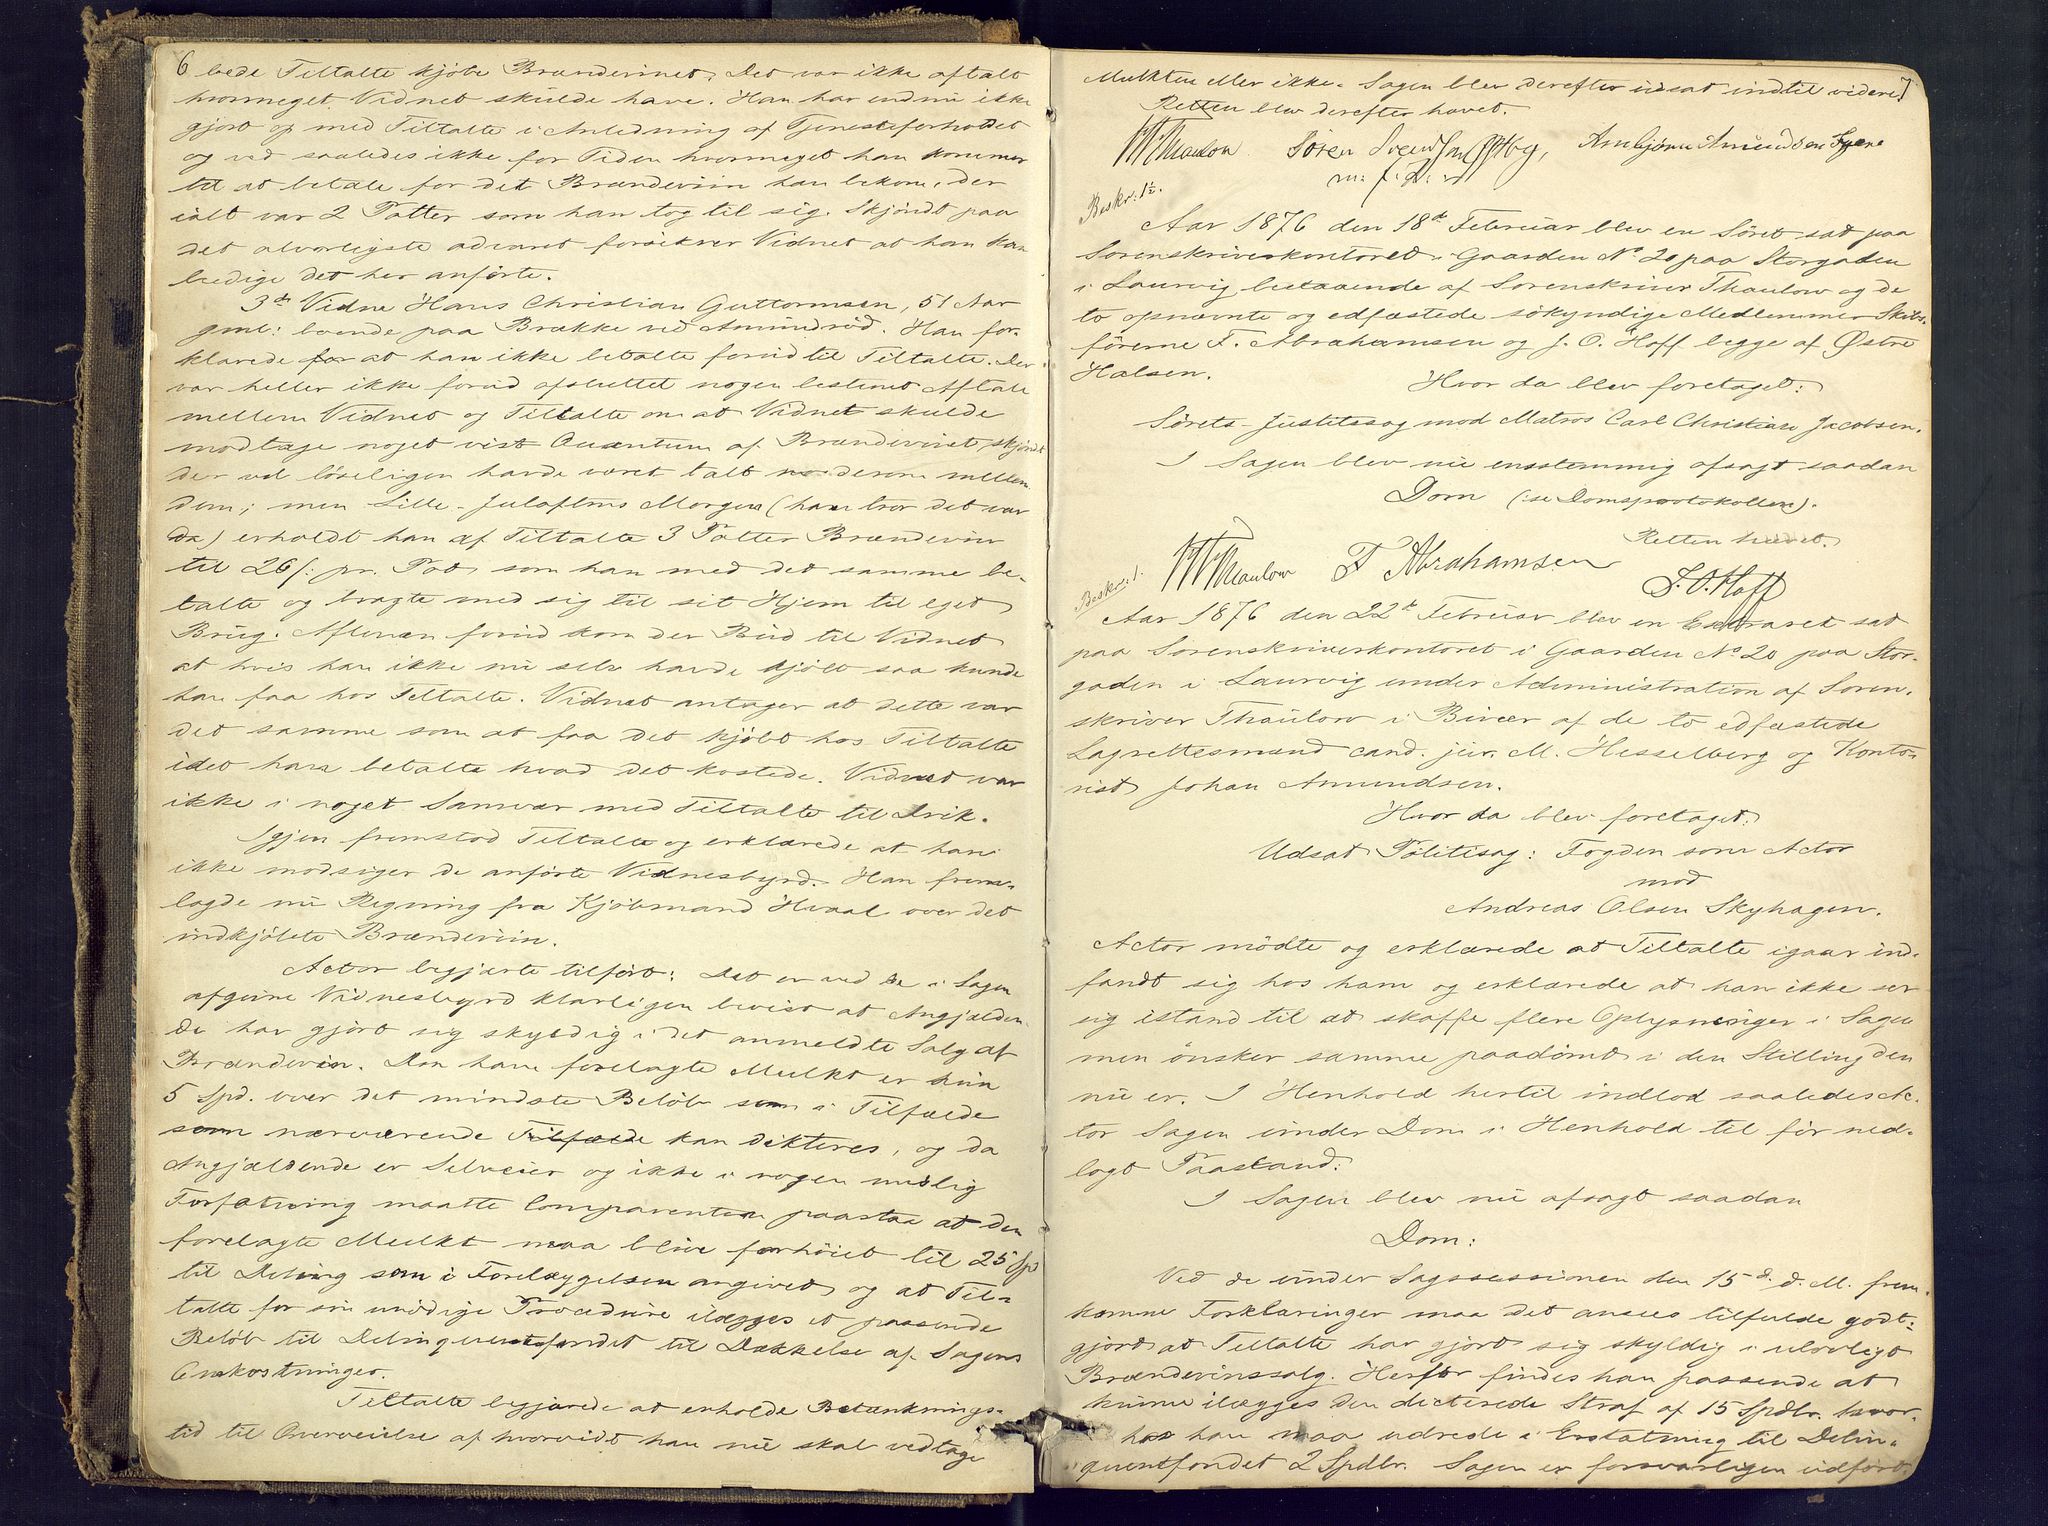 6
bede Tiltalte kjøbe Brændevinet. Det var ikke aftalt
hvormeget Vidnet skulde have. Han har endnu ikke
gjort op med Tiltalte i Anledning af Tjenesteforholdet
og ved saaledes ikke for Tiden hvormeget han kommer
til at betale for det Brændeviin han bekom, der
ialt var 2 Potter som han tog til sig. Skjøndt paa
det alvorligste advaret forsikrer Vidnet at han kan
beedige det her anførte.
3die Vidne Hans Christian Guttormsen, 51 Aar
gml: boende paa Brække ved Amundrød. Han for-
klarede at han ikke betalte forud til Tiltalte. Der
var heller ikke forud afsluttet nogen bestemt Aftale
mellem Vidnet og Tiltalte om at Vidnet skulde
modtage noget vist Quantum af Brændevinet, skjøndt
der vel løseligen havde været talt derom mellem
dem; men Lille-Juleaftens Morgen (han tror det var
da) erholdt han af Tiltalte 3 Potter Brændeviin
til 26 s: pr. Pot, som han med det samme be-
talte og bragte med sig til sit Hjem til eget
Brug. Aftenen forud kom der Bud til Vidnet
at hvis han ikke nu selv havde kjøbt saa kunde
han faa hos Tiltalte. Vidnet antager at dette var
det samme som at faa det kjøbt hos Tiltalte
idet han betalte hvad det kostede. Vidnet var
ikke i noget Samvær med Tiltalte til Drik.
Igjen fremstod Tiltalte og erklærede at han
ikke modsiger de anførte Vidnesbyrd. Han frem-
lagde nu Regning fra Kjøbmand Hvaal over det
indkjøbte Brændeviin.
Actor begjærte tilført: Det er ved de i Sagen
afgivne Vidnesbyrd klarligen bevist at Angjælden-
de har gjort sig skyldig i det anmeldte Salg af
Brændeviin. Den ham forelagte Mulkt er kun
5 Spd. over det mindste Beløb som i Tilfælde
som nærværende Tilfælde kan dikteres, og da
Angjældende er Selveier og ikke i nogen uslig
Forfatning maatte Comparenten paastaa at den
forelagte Mulkt maa blive forhøiet til 25 Spd
til Deling som i Forelæggelsen angivet og at Til-
talte for sin unødige Procedure ilægges et passende
Beløb til Delinquentfondet til Dækkelse af Sagens
Omkostninger.
Tiltalte begjærede at erholde Betænknings-
tid til Overveielse af hvorvidt han nu skal vedtage
7
Mulkten eller ikke. Sagen blev derefter udsat indtil videre.
Retten blev derefter hævet.
WThaulow Søren Svendsen Ambjørn Amundsen
m. f. P.
Beskr: 1½.
Aar 1876 den 18de Februar blev en Søret sat paa
Sorenskriverkontoret i Gaarden No 20 paa Storgaden
i Laurvig bestaaende af Sorenskriver Thaulow og de
to opnævnte og edfæstede søkyndige Medlemmer Skibs-
førerne F. Abrahamsen og J. O. Hoff begge af Østre
Halsen.
Hvor da blev foretaget:
Sørets-Justitssag mod Matros Carl Christian Jacobsen.
I Sagen blev nu eensstemmig afsagt saadan
Dom (se Domsprotokollen).
Retten hævet.
WThaulow F Abrahamsen J. O. Hoff
Beskr: 1.
Aar 1876 den 22de Februar blev en Extraret sat
paa Sorenskriverkontoret i Gaarden No 20 paa Stor-
gaden i Laurvig under Administration af Soren-
skriver Thaulow i Bivær af de to edfæstede
Lagrettesmænd cand. jur. M. Hesselberg og Konto-
rist Johan Amundsen.
Hvor da blev foretaget:
Udsat Politisag: Fogden som Actor
mod
Andreas Olsen Skyhagen.
Actor mødte og erklærede at Tiltalte igaar ind-
fandt sig hos ham og erklærede at han ikke ser
sig istand til at skaffe flere Oplysninger i Sagen
men ønsker samme paadømt i den Stilling den
nu er. I Henhold hertil indlod saaledes Ac-
tor Sagen under Dom i Henhold til før ned-
lagt Paastand.
I Sagen blev nu afsagt saadan
Dom:
Ved de under Sagssessionen den 15d. d. M. frem-
komne Forklaringer maa det ansees tilfulde godt-
gjort at Tiltalte har gjort sig skyldig i ulovligt
Brændevinssalg. Herfor findes han passende at
kunne ilægges den dicterede Straf af 15 Spdlr. hvor-
hos han maa udrede i Erstatning til Delin-
quentfondet 2 Spdlr. Sagen er forsvarligen udført.